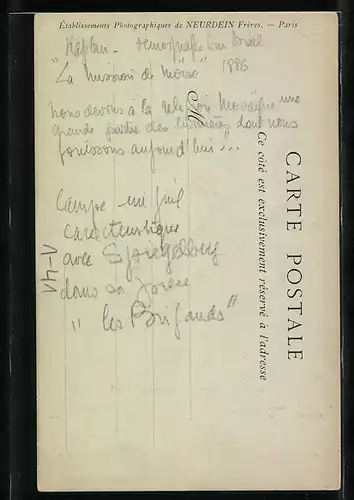 Établissements Photographiques de NEURDEIN Frères. — Paris
Kaplan -
"La mission de Moïse" 1886
nous devons à la religion Mosaïque une
grande partie des lumières dont nous
jouissons aujourd'hui"...
Campe un juif
caractéristique
avec Spiegelberg
dans sa
"les Brigands"
1-41
M
CARTE POSTALE
Ce côté est exclusivement réservé à l'adresse